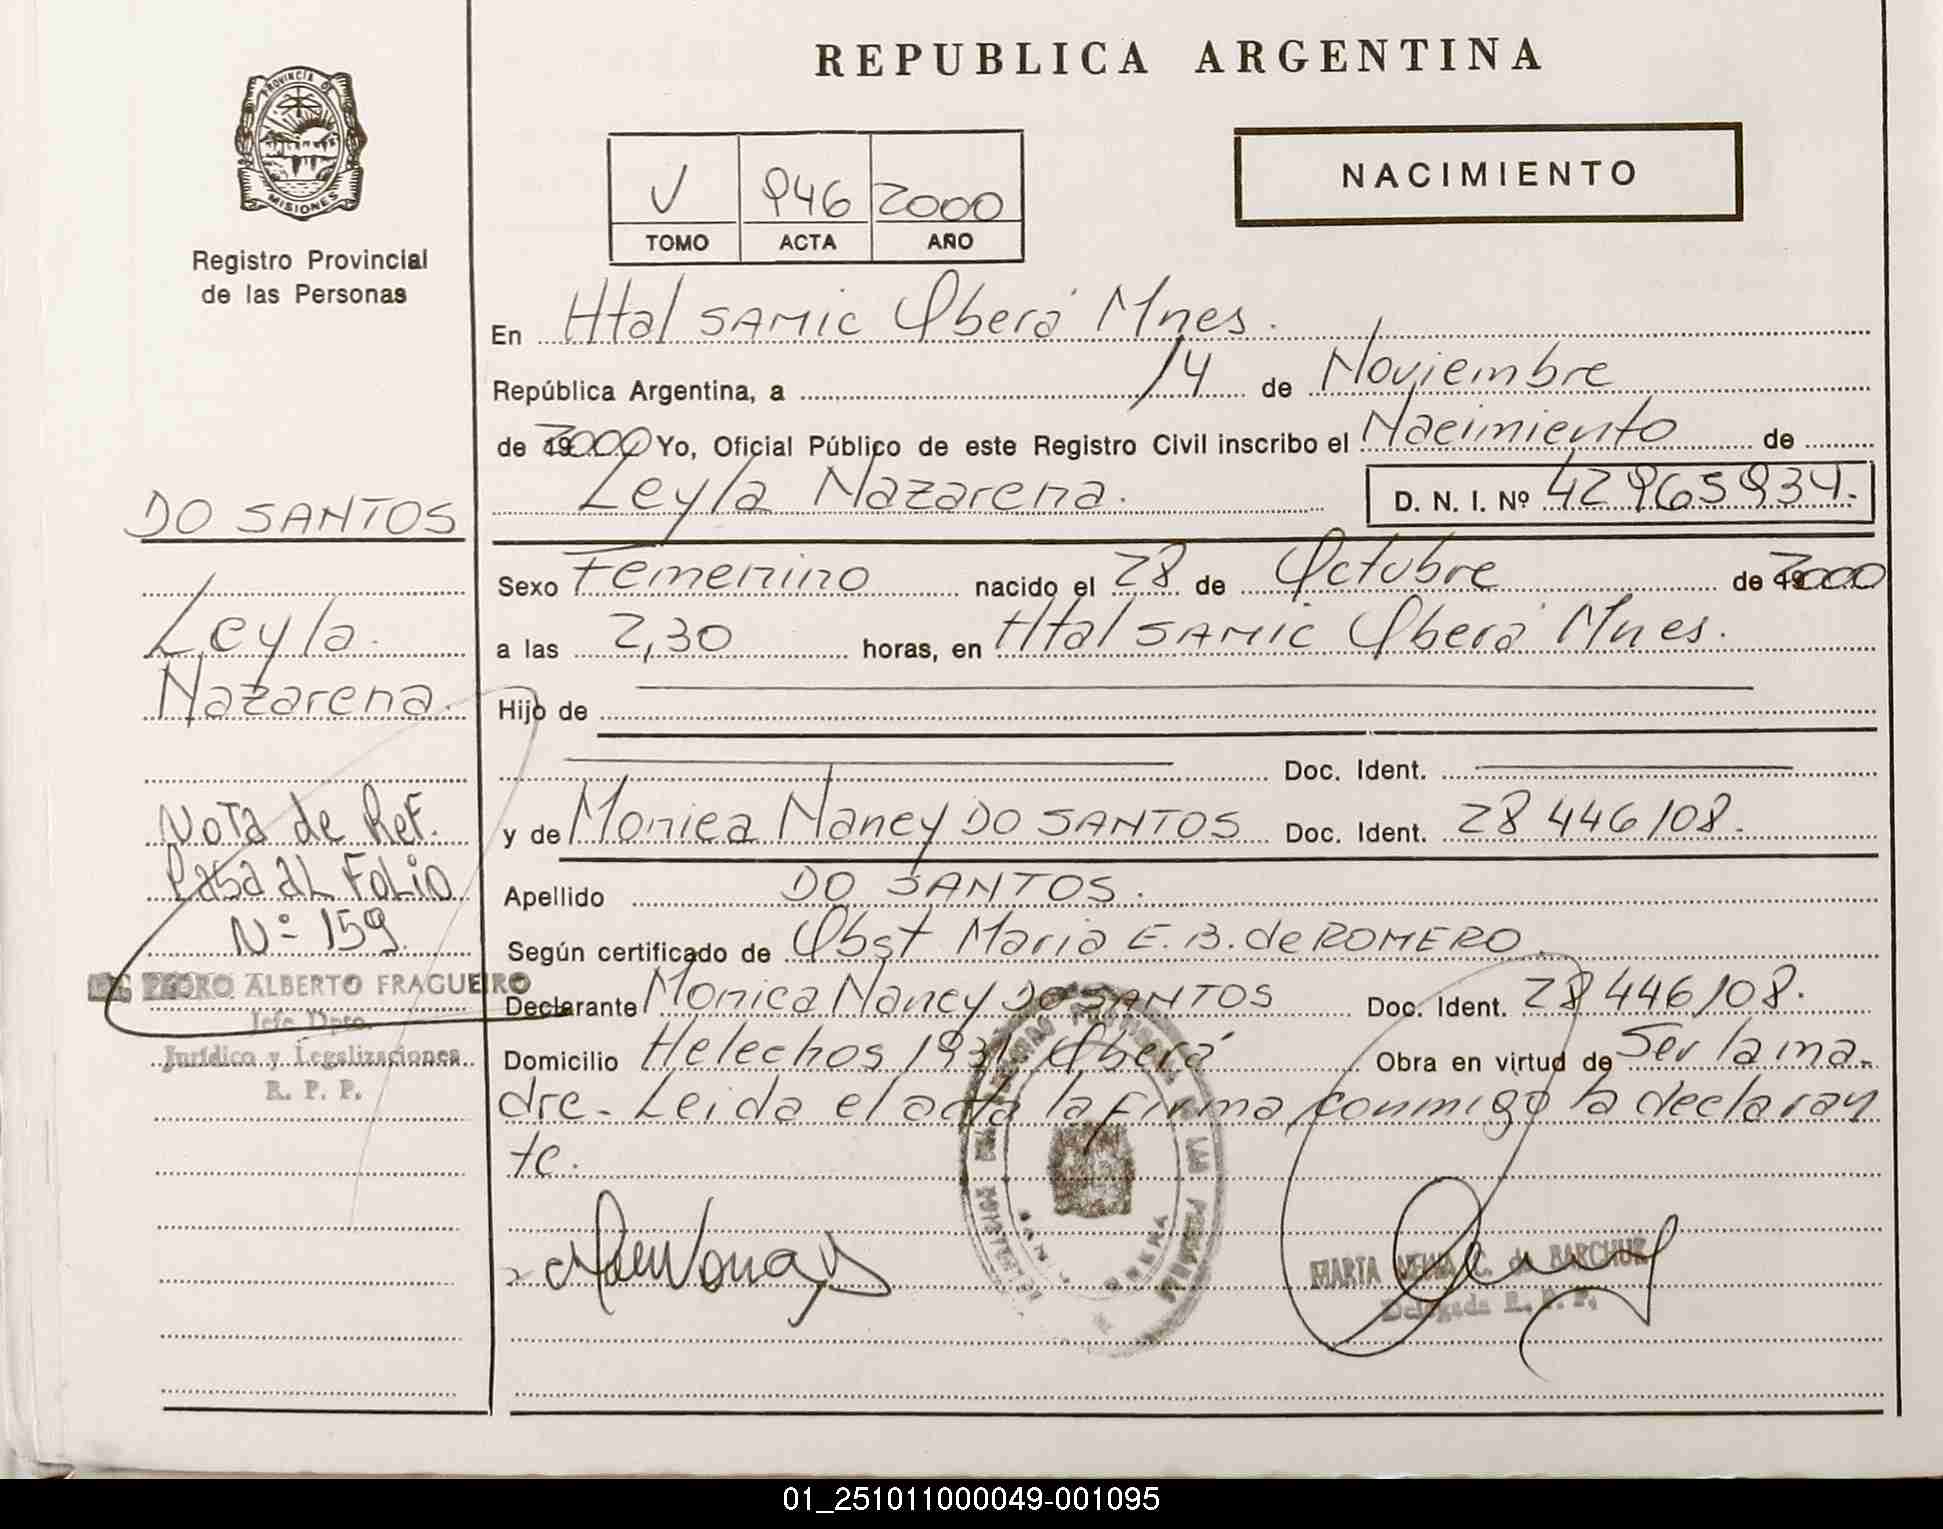 REPUBLICA ARGENTINA
PROVINCIA DE
MISIONES
Registro Provincial
de las Personas
V 946 2000
TOMO ACTA AÑO
NACIMIENTO
En Htal SAMIC Oberá Mnes.
República Argentina, a 14 de Noviembre
de 2000 Yo, Oficial Público de este Registro Civil inscribo el Nacimiento de
Leyla Nazarena. D. N. I. Nº 42965934.
Sexo Femenino nacido el 28 de Octubre de 2000
a las 2,30 horas, en Htal SAMIC Oberá Mnes.
Hijo de
Doc. Ident.
y de Monica Nancy DO SANTOS Doc. Ident. 28 446108.
Apellido DO SANTOS.
Según certificado de Obst Maria E. B. de ROMERO.
Declarante Monica Nancy DO SANTOS Doc. Ident. 28 446108.
Domicilio Helechos 1931 Oberá Obra en virtud de Ser la ma-
dre. Leida el acta la firma conmigo la declaran
te.
MARTA C. de BARCHUK
Delegada R. P. P.
DO SANTOS
Leyla
Nazarena.
Nota de Ref.
Pasa al Folio
Nº 159.
PEDRO ALBERTO FRAGUEIRO
Jefe Dpto.
Jurídico y Legalizaciones
R. P. P.
01_251011000049-001095